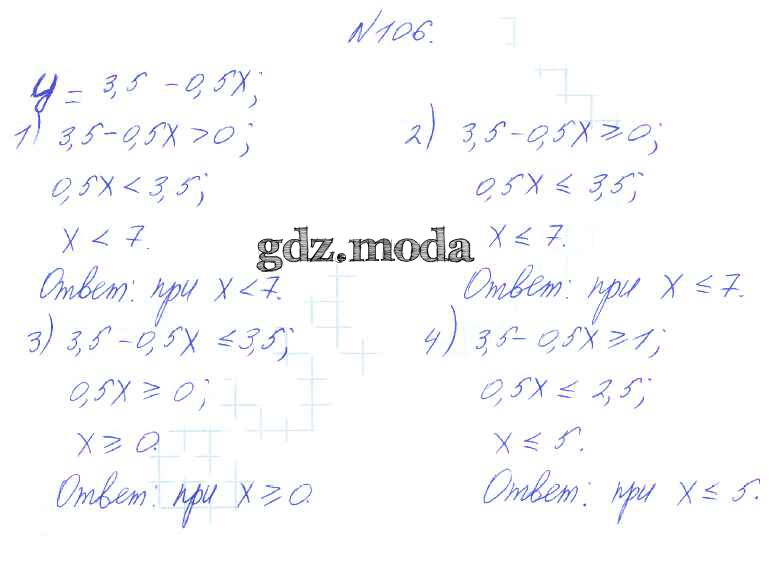 №106.
y = 3,5 - 0,5x;
1) 3,5 - 0,5x > 0;
0,5x < 3,5;
x < 7.
Ответ: при x < 7.
2) 3,5 - 0,5x ≥ 0;
0,5x ≤ 3,5;
x ≤ 7.
Ответ: при x ≤ 7.
gdz.moda
3) 3,5 - 0,5x ≤ 3,5;
0,5x ≥ 0;
x ≥ 0.
Ответ: при x ≥ 0.
4) 3,5 - 0,5x ≥ 1;
0,5x ≤ 2,5;
x ≤ 5.
Ответ: при x ≤ 5.